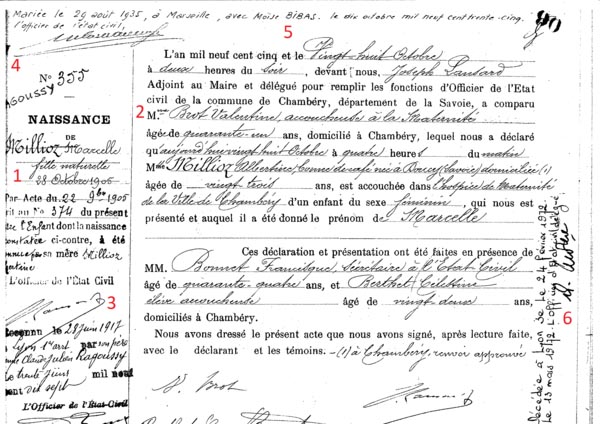 Mariée le 29 août 1935, à Marseille, avec Moïse BIBAS. le dix octobre mil neuf cent trente-cinq.
l'officier de l'état civil,
5
4
N° 355
RAGOUSSY
NAISSANCE
DE
Millioz Marcelle
fille naturelle
1
28 Octobre 1905
Par Acte du 22 9bre 1905
N° 374 du présent
l'Enfant dont la naissance
constatée ci-contre, a été
par sa mère Millioz
L'Officier de l'État Civil
3
Reconnu le 28 juin 1917
à Lyon 1er arrt par
Claude Julien Ragoussy
Le trente juin mil neuf
cent dix sept
L'Officier de l'État Civil
L'an mil neuf cent cinq et le Vingt huit Octobre
à deux heures du soir, devant nous, Joseph Lansard
Adjoint au Maire et délégué pour remplir les fonctions d'Officier de l'Etat
civil de la commune de Chambéry, département de la Savoie, a comparu
2 Mme Brot Valentine, accoucheuse à la Maternité
âgée de quarante un ans, domicilié à Chambéry, lequel nous a déclaré
qu'aujourd'hui vingt huit Octobre à quatre heures du matin
Mlle Millioz Albertine, née à (Savoie) domiciliée (1)
âgée de vingt trois ans, est accouchée dans l'hospice de Maternité
de la Ville de Chambéry d'un enfant du sexe féminin, qui nous est
présenté et auquel il a été donné le prénom de Marcelle
Ces déclaration et présentation ont été faites en présence de
MM. Bonnet Françisque, Secrétaire à l'Etat Civil
âgé de quarante quatre ans, et Berthet Célestine
élève accoucheuse âgé de vingt deux ans,
domiciliés à Chambéry.
Nous avons dressé le présent acte que nous avons signé, après lecture faite,
avec le déclarant et les témoins. —(1) à Chambéry, renvoi approuvé
V. Brot
6
Décédée à Lyon 3e Le 24 février 1972.
Le 13 mars 1972. L'officier d'État civil délégué